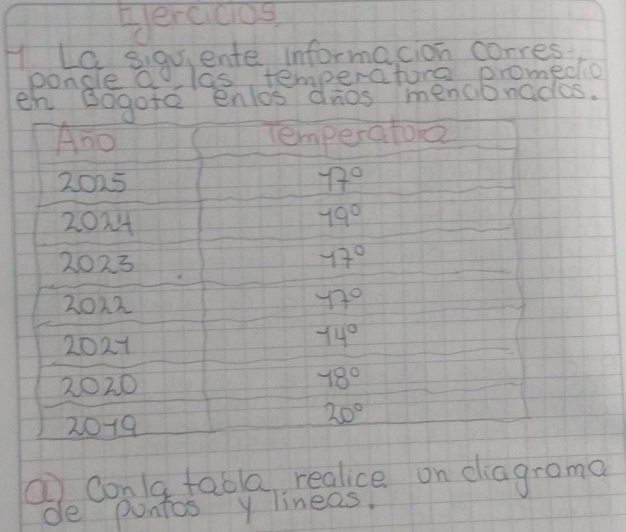 Ejercicios
1 La siguiente informacion corres-
ponde a las temperatura promedio
en Bogotá enlos años mencionados.
Año Temperatura
2025 17°
2024 19°
2023 17°
2022 17°
2021 14°
2020 18°
2019 20°
a) Con la tabla realice un diagrama
de puntos y lineas.